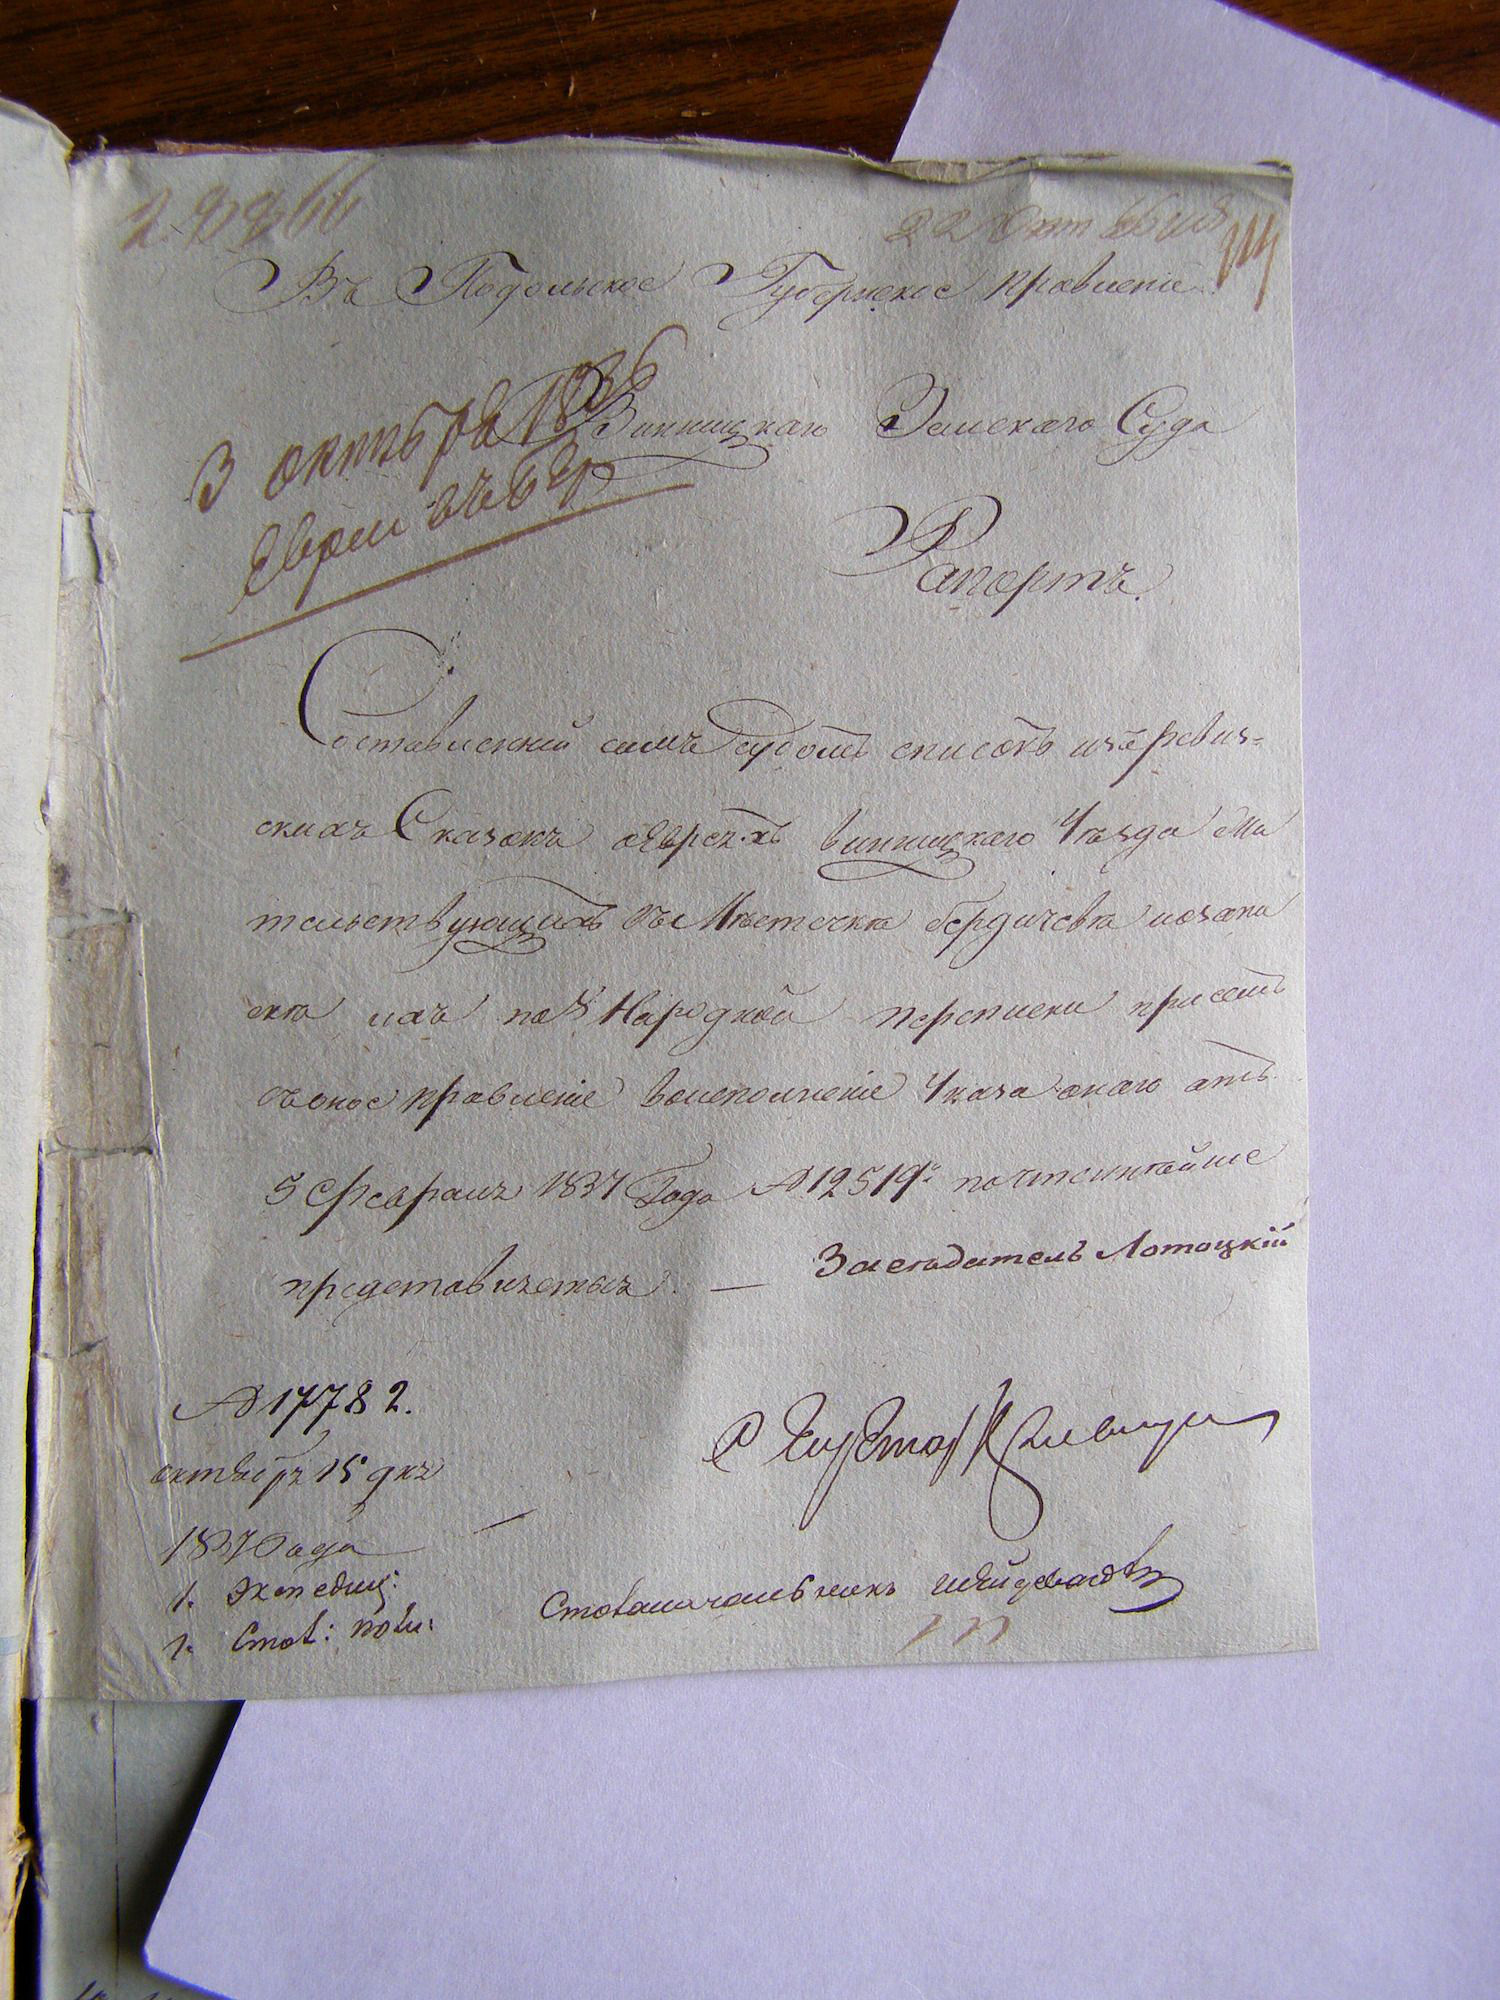 22 Октября
Въ Подольское Губернское правленіе
3 октября 183
Винницкаго Земскаго Суда
Рапортъ.
Составленный симъ Судомъ списокъ изъ ревиз=
скихъ Сказокъ о Евреяхъ винницкаго Уѣзда жи
тельствующихъ въ Мѣстечкѣ бердичевѣ и
ихъ по 8 Народной переписи при семъ
въ оное правленіе во исполненіе Указа онаго отъ
5 февраля 1837 Года № 12519 почтеннѣйше
представляетъ. — Засѣдатель Лотоцкій
№ 17782.
октября 15 дня
1837 Года
1. Экспедиц:
1. Стол: пов:
Столоначальникъ